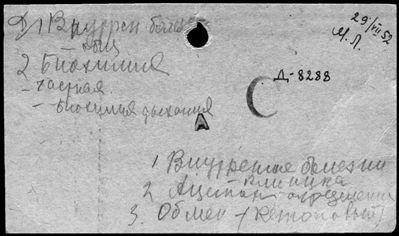 1 Внутрен болез
29/VII 52
М. Л.
общ
2 Биохимия
Д-8288
- частная
- биохимия дыхания
А
1 Внутренние болезни
клиника
2 Ацетон определение
3. Обмен - (кетоновый)